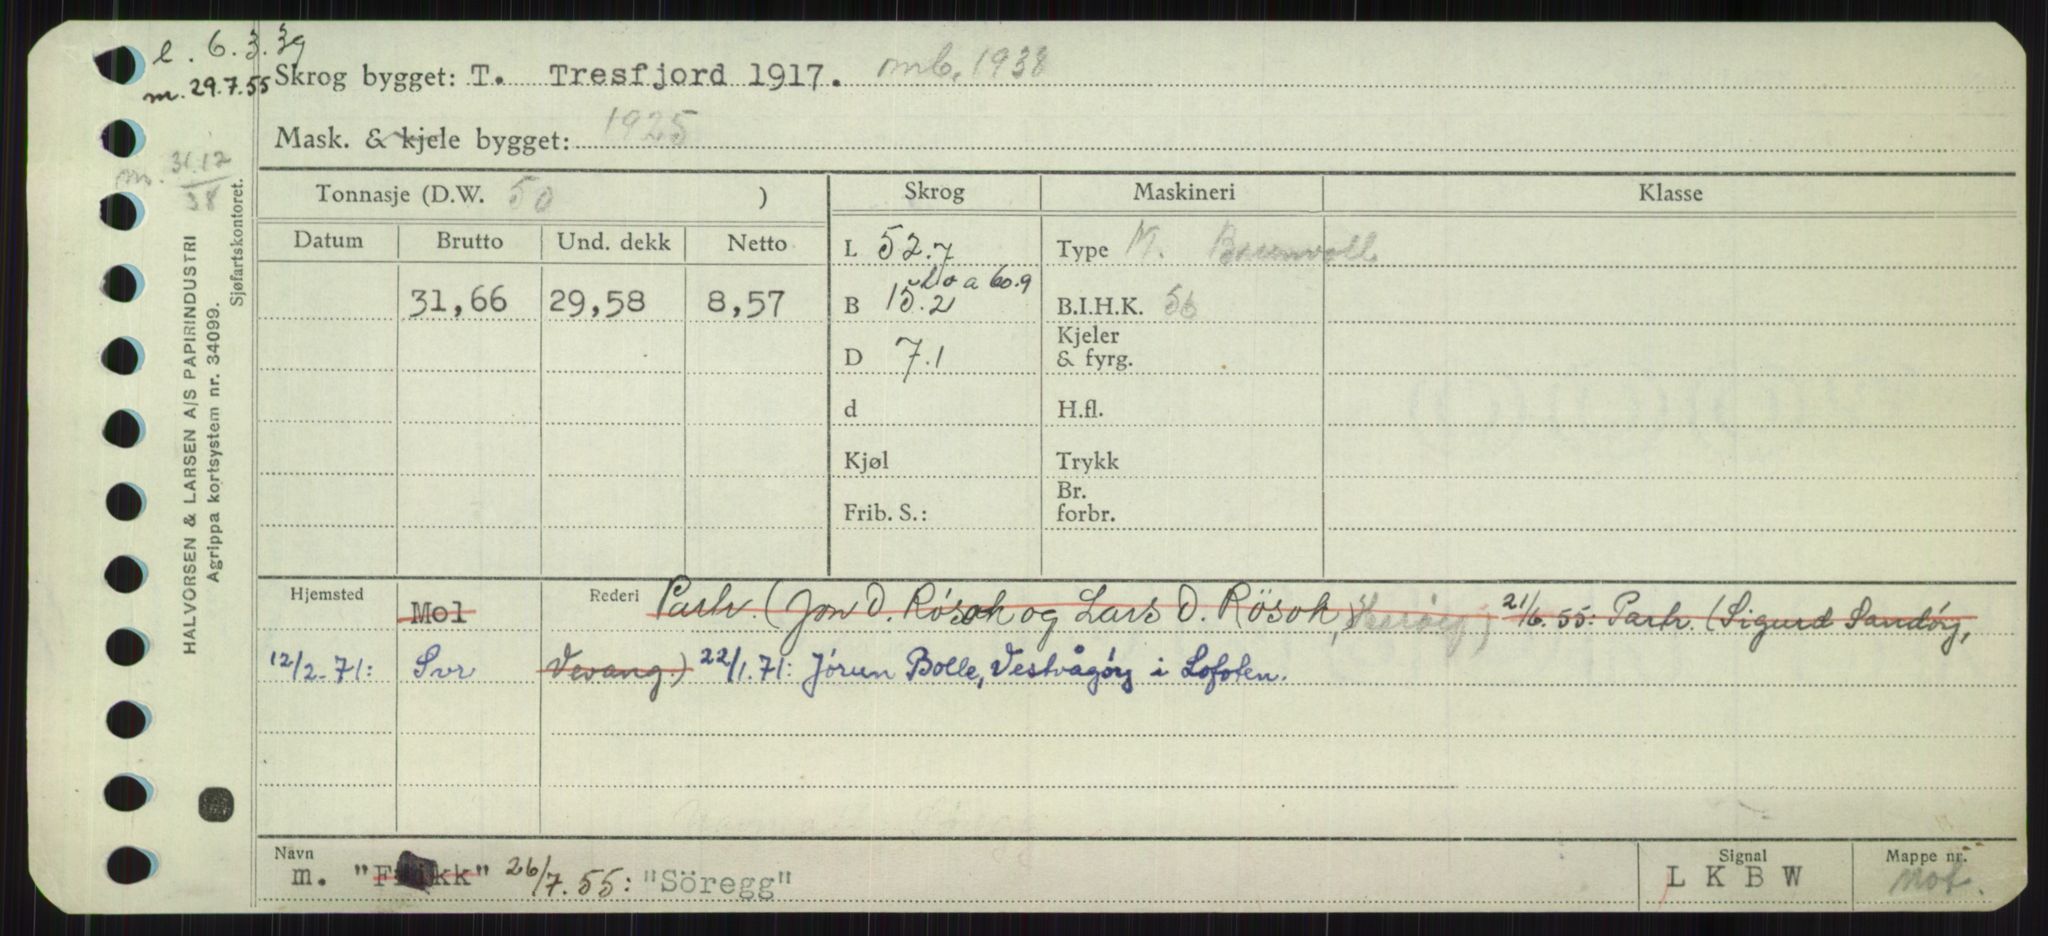 l. 6.3.39
m. 29.7.55
Skrog bygget: T. Tresfjord 1917. mb. 1938
Mask. & kjele bygget: 1925
m. 31.12/38
HALVORSEN & LARSEN A/S PAPIRINDUSTRI
Agrippa kortsystem nr. 34099.
Sjøfartskontoret.
Tonnasje (D.W. 50 )
Skrog Maskineri Klasse
Datum Brutto Und. dekk Netto
L 52.7 Type M. Brunvoll
Loa 60.9
31,66 29,58 8,57
B 15.2 B.I.H.K. 56
D 7.1 Kjeler & fyrg.
d H.fl.
Kjøl Trykk
Frib. S.: Br. forbr.
Hjemsted Mol Rederi Partr. (Jon O. Rösok og Lars O. Rösok, 21/6.55: Partr. (Sigurd Sandöy,
12/2-71: Svr Vevang.) 22/1.71: Jörun Bolle, Vestvågöy i Lofoten.
Navn Signal Mappe nr.
m. "Frikk" 26/7.55: "Söregg" L K B W mot.